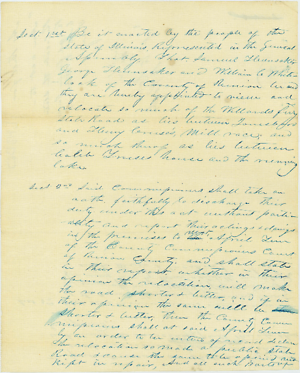 Sect 1st Be it enacted by the people of the
State of Illinois Represented in the General
Assembly That Samuel
George and William
of the County of and
they are hereby appointed to view and
relocate so much of the
State Road as lies between
and Henry Mill race and
so much thereof as lies between
house and the
lake
Sect 2nd Said Commissioners shall take an
oath faithfully to discharge their
duty under this act without partia
ality and report their actings doings
of the premises to the April Term
of the County Commissioners Court
of County, and shall state
in their report whether in their
opinion the relocation will make
the road shorter & better, and if in
their opinion the same will be
shorter & better, then the County Comm
issioners shall at said April Term
by an order to be entered of record declare
the relocation so made a public State
Road & cause the same to be opened and
Kept in repair, And all such parts of